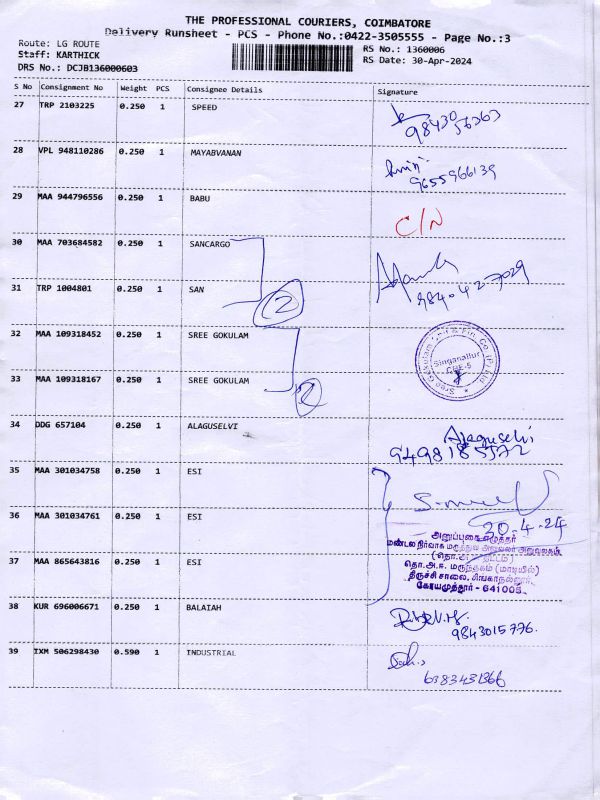 THE PROFESSIONAL COURIERS, COIMBATORE
Delivery Runsheet - PCS - Phone No.:0422-3505555 - Page No.:3
Route: LG ROUTE
Staff: KARTHICK
DRS No.: DCJB136000603
RS No.: 1360006
RS Date: 30-Apr-2024
S No Consignment No Weight PCS Consignee Details Signature
27 TRP 2103225 0.250 1 SPEED
98430
56363
28 VPL 948110286 0.250 1 MAYABVANAN
9655966139
29 MAA 944796556 0.250 1 BABU
C/N
30 MAA 703684582 0.250 1 SANCARGO
31 TRP 1004801 0.250 1 SAN
2
984-042-7029
32 MAA 109318452 0.250 1 SREE GOKULAM
33 MAA 109318167 0.250 1 SREE GOKULAM
2
Sree Gokulam Chit & Fin. Co (P) Ltd
Singanallur
CBE-5
34 DDG 657104 0.250 1 ALAGUSELVI
Alaguselvi
35 MAA 301034758 0.250 1 ESI
36 MAA 301034761 0.250 1 ESI
30-4-24
அனுப்புகை எழுத்தர்
மண்டல நிர்வாக மருத்துவ அலுவலர் அலுவலகம்
தொ.அ.ஈ. மருந்தகம் (மாடியில்)
திருச்சி சாலை, சிங்காநல்லூர்,
கோயமுத்தூர் - 641005
37 MAA 865643816 0.250 1 ESI
38 KUR 696006671 0.250 1 BALAIAH
9843015776.
39 IXM 506298430 0.590 1 INDUSTRIAL
6383431366